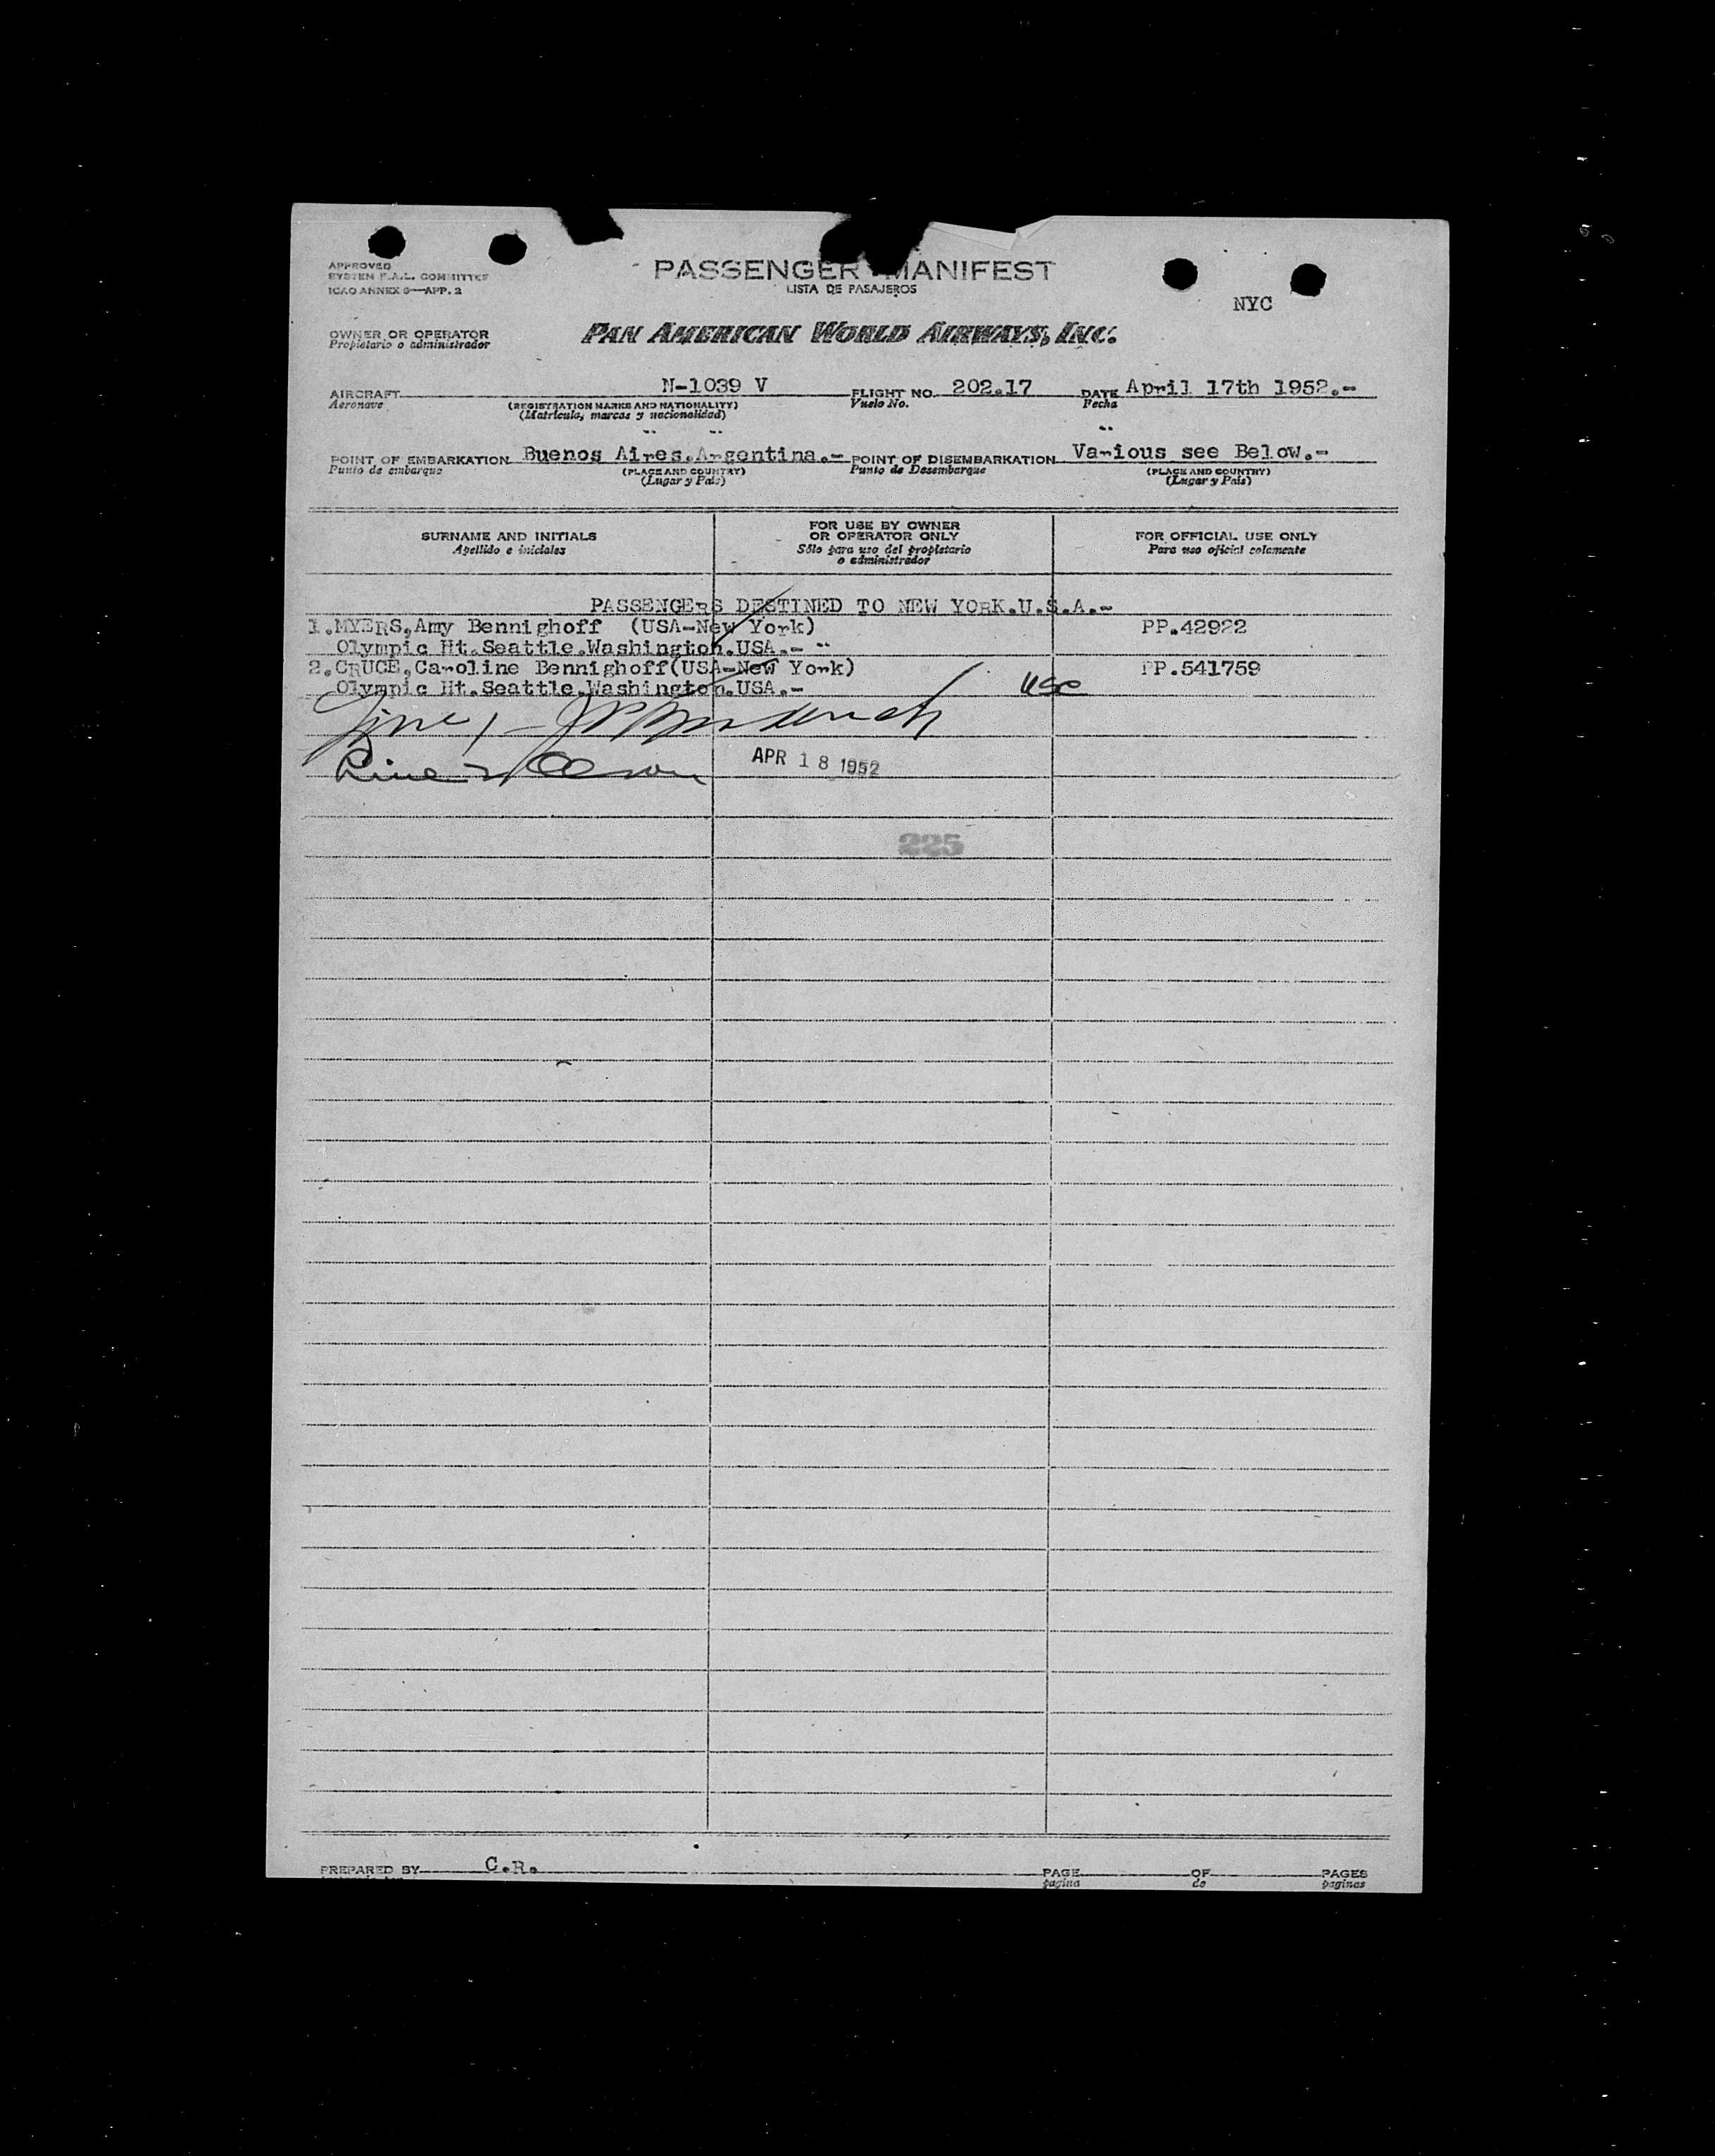 APPROVED
SYSTEM F.A.L. COMMITTEE
ICAO ANNEX 9—APP. 2
PASSENGER MANIFEST
LISTA DE PASAJEROS
NYC
OWNER OR OPERATOR
Propietario o administrador
PAN AMERICAN WORLD AIRWAYS, INC.
AIRCRAFT N-1039 V FLIGHT NO. 202.17 DATE April 17th 1952.-
Aeronave (REGISTRATION MARKS AND NATIONALITY) Vuelo No. Fecha
(Matrícula, marcas y nacionalidad)
POINT OF EMBARKATION Buenos Aires.Argentina.- POINT OF DISEMBARKATION Various see Below.-
Punto de embarque (PLACE AND COUNTRY) Punto de Desembarque (PLACE AND COUNTRY)
(Lugar y País) (Lugar y País)
SURNAME AND INITIALS
Apellido e iniciales
FOR USE BY OWNER
OR OPERATOR ONLY
Sólo para uso del propietario
o administrador
FOR OFFICIAL USE ONLY
Para uso oficial solamente
PASSENGERS DESTINED TO NEW YORK.U.S.A.-
1.MYERS,Amy Bennighoff (USA-New York) PP.42922
Olympic Ht.Seattle.Washington.USA.-
2.CRUCE,Caroline Bennighoff(USA-New York) PP.541759
Olympic Ht.Seattle.Washington.USA.- USC
Line 1 -
Line 2
APR 18 1952
225
PREPARED BY C.R. PAGE OF PAGES
pagina de paginas